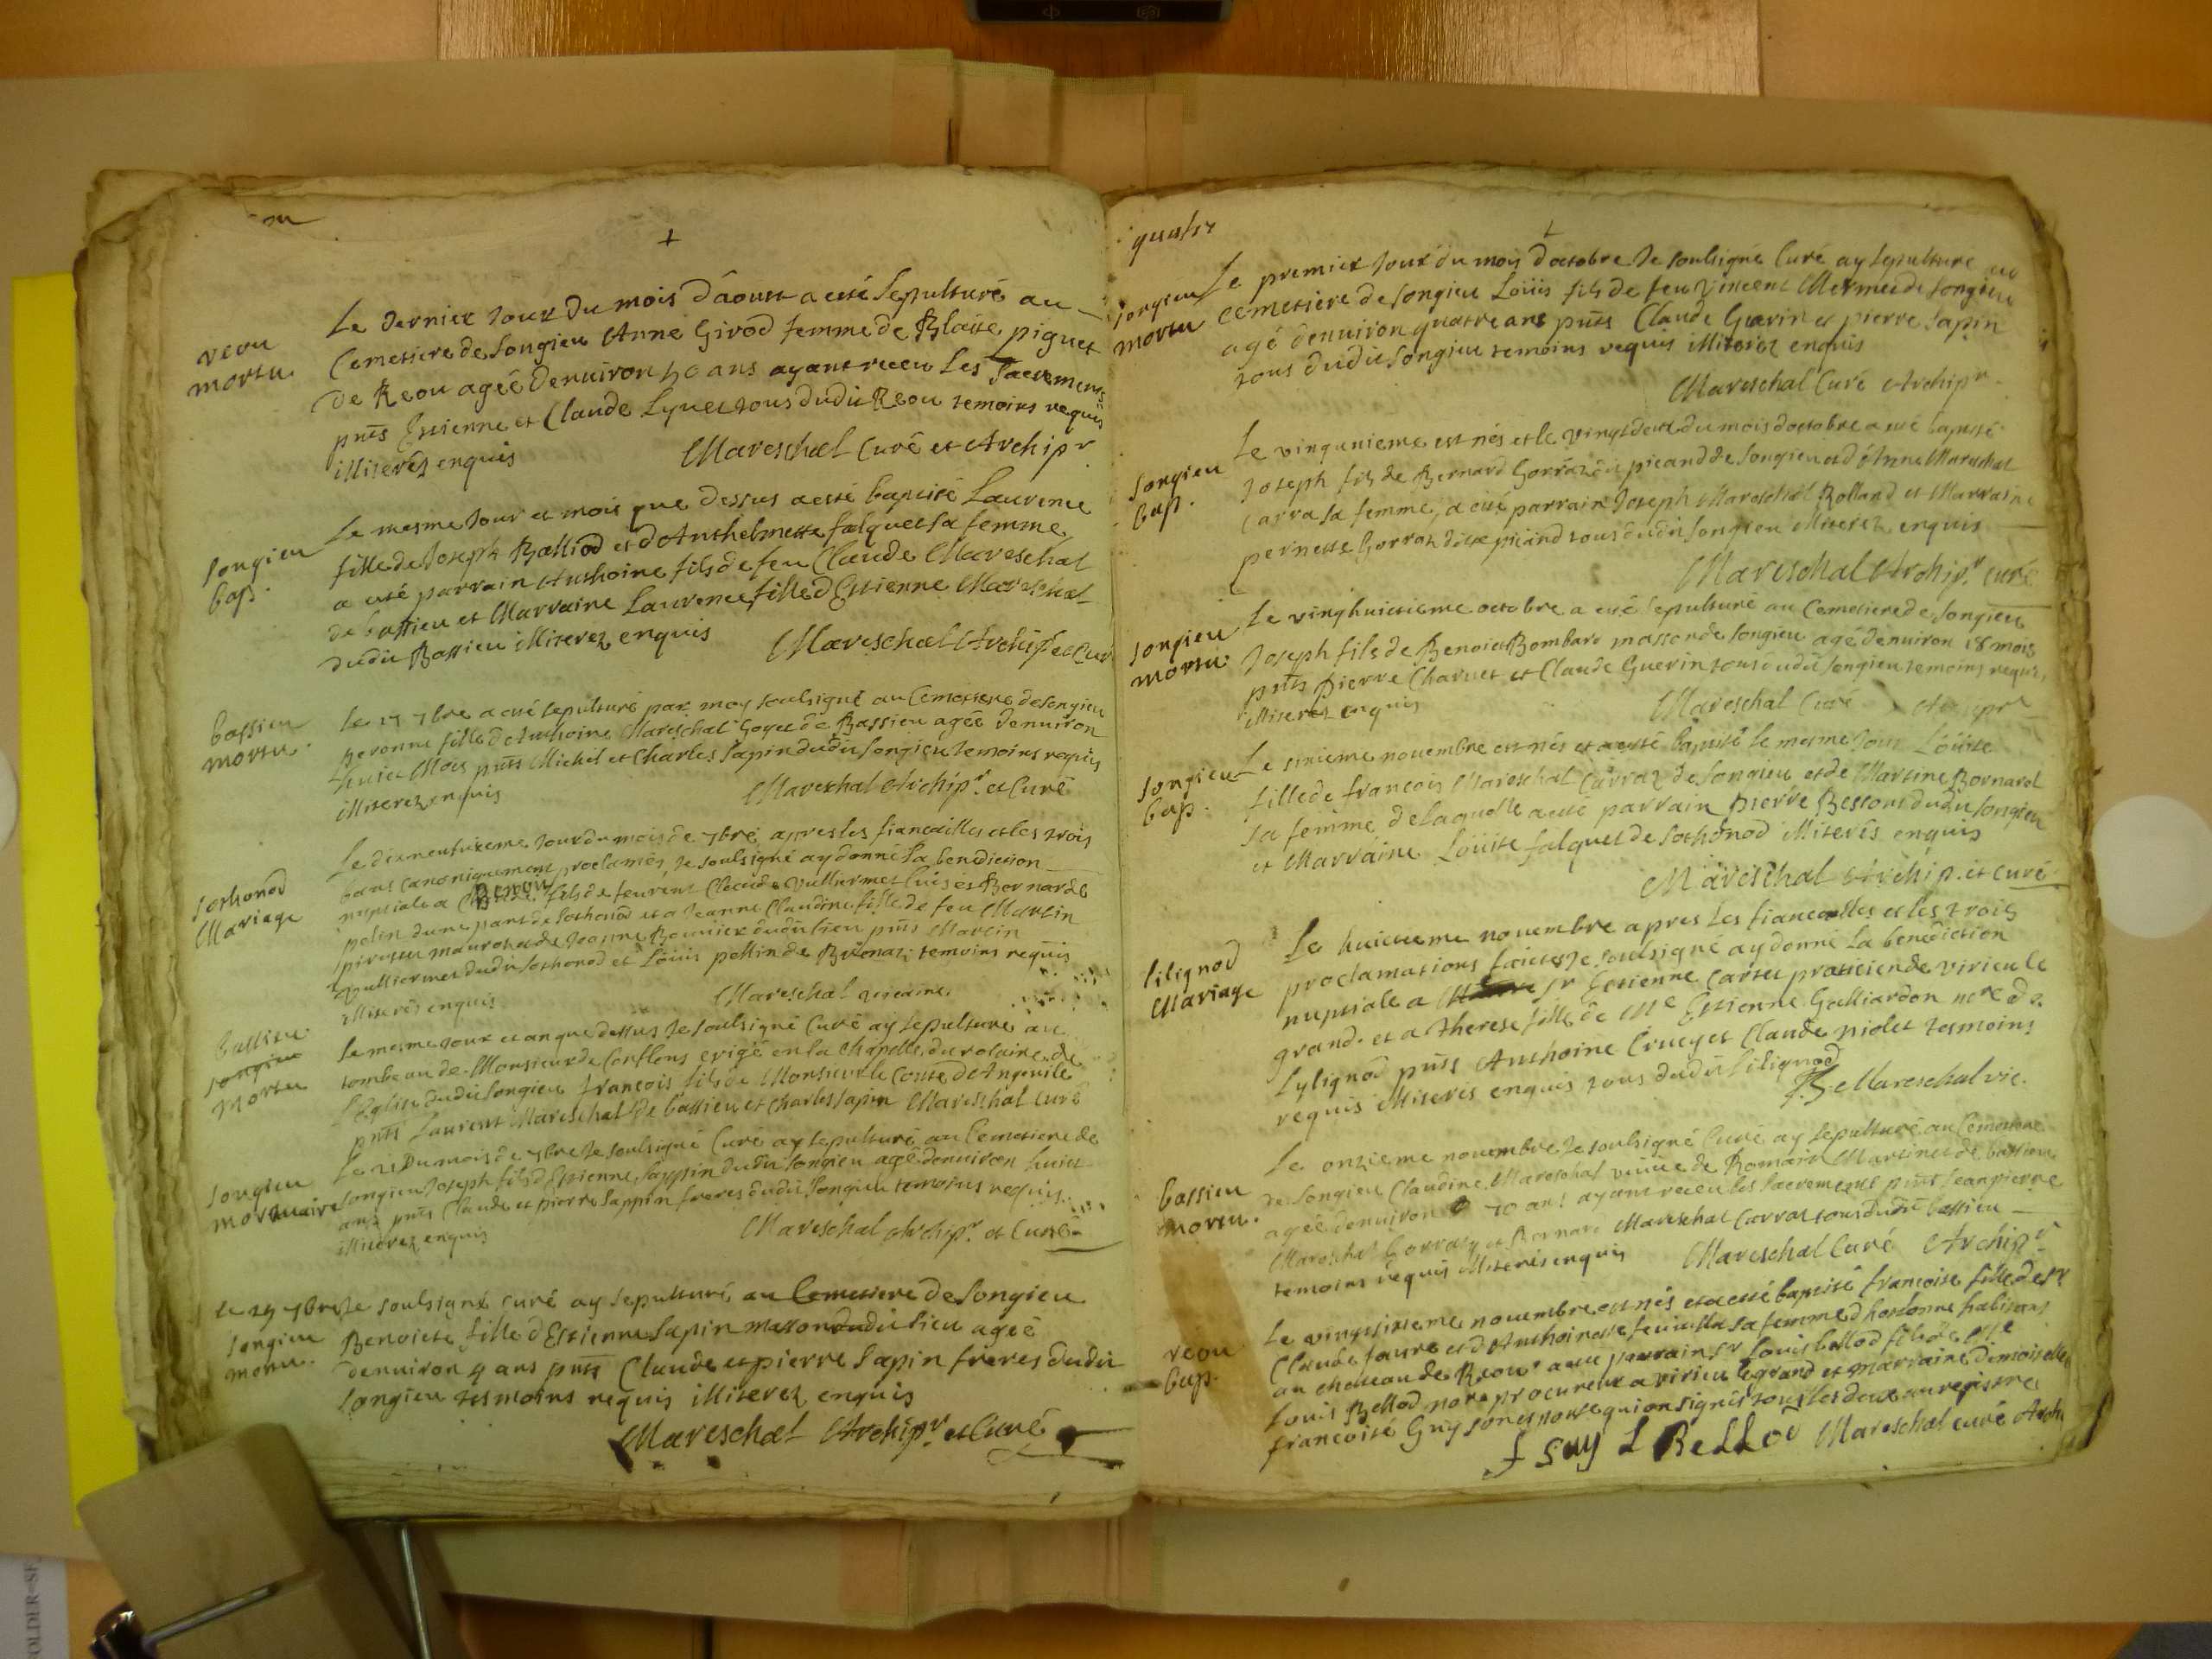 reou
mortu.
Le dernier Jour du mois d'aoust a esté sepulturé au
Cemetiere de songieu Anne Girod femme de Blaise piguet
de Reou ageé denuiron 50 ans ayant receu Les Sacremens
pnts Estienne et Claude Lyuet tous dudit Reou temoins requis
illiterez enquis
Mareschal Curé et Archipr
songieu
bap.
Le mesme Jour et mois que dessus a esté baptisé Laurence
fille de Joseph Balliod et d'Anthelmette falquet sa femme
a esté parrain Anthoine fils de feu Claude Mareschal
de bassieu et Marraine Laurence fille d'Estienne Mareschal
dudit Bassieu illiterez enquis
Mareschal Archipr et Cur
bassieu
mortu.
Le 7bre a esté sepulturé par moy soubsigné au Cemetiere de songieu
peronne fille d'Anthoine Mareschal Goyet de Bassieu ageé denuiron
huict Mois pnts Michel et Charles Sapin dudit songieu temoins requis
illiterez enquis
Mareschal Archipr. et Curé
sothonod
Mariage
Le dixneufuieme Jour du mois de 7bre apres les fiancailles et les trois
bans canoniquement proclamés, Je soulsigné ay donné la benediction
nuptiale a Claude fils de feu Claude Vulliermet et Bernarde
polin dune part de sothonod et a Jeanne Claudine fille de feu Martin
dudit lieu pnts Martin
Vulliermet dudit sothonod et Loüis pollin de temoins requis
illiterés enquis
Mareschal vicaire.
bassieu
songieu
Mortu
Le mesme Jour et an que dessus Je soulsigné Curé ay sepulturé au
tombeau de Monsieur de Conflens erigé en la Chapelle du rosaire de
l'Eglise dudit songieu francois fils de Monsieur le Conte d'Angeuile
pnts Laurent Mareschal de bassieu et Charles Sapin Mareschal Curé
songieu
mortuaire
Le 21 du mois de 7bre Je soulsigné Curé ay sepulturé au Cemetiere de
songieu Joseph fils d'Estienne Sappin dudit songieu agé denuiron huict
ans pnts Claude et pierre Sappin freres dudit songieu temoins requis
illiterez enquis
Mareschal Archipr. et Curé
songieu
mortu.
Le 29 7bre Je soulsigné curé ay sepulturé au Cemetiere de Songieu
Benoicte fille d'Estienne Sapin masson dudit lieu ageé
denuiron 4 ans pnts Claude et pierre Sapin freres dudit
songieu tesmoins requis illiterez enquis
Mareschal Archipr. et Curé
quatre
songieu
mortu
Le premier Jour du mois d'octobre Je soulsigné Curé ay sepulturé au
cemetiere de songieu Loüis fils de feu Vincent Mermet de songieu
agé denuiron quatre ans pnts Claude Guerin et pierre Sapin
tous dudit songieu temoins requis illiterez enquis
Mareschal Curé Archipr.
songieu
bap.
Le vingunieme est nés et le vingtdeux du mois d'octobre a esté baptisé
Joseph fils de Bernard Gorraz dit picand de songieu et d'Anne Mareschal
Carra sa femme, a esté parrain Joseph Mareschal Rolland et Marraine
pernette Gorraz dite picand tous dudit songieu illiterez enquis
Mareschal Archipr. curé
songieu
mortu.
Le vinghuictieme octobre a esté sepulturé au Cemetiere de songieu
Joseph fils de Benoict Bombard masson de songieu agé denuiron 18 mois
pnts pierre Charuet et Claude Guerin tous dudit songieu temoins requis
illiterez enquis
Mareschal Curé Archipr
songieu
bap.
Le sixieme nouembre est nés et a esté baptisé le mesme Jour Loüise
fille de francois Mareschal Carraz de songieu et de Martine Bornard
sa femme de laquelle a esté parrain pierre Bessons dudit songieu
et Marraine Loüise falquet de sothonod illiterés enquis
Mareschal Archip. et curé
lilignod
Mariage
Le huictieme nouembre apres les fiancailles et les trois
proclamations faictes Je soulsigné ay donné la benediction
nuptiale a sr Estienne Cartet praticien de virieu le
grand. et a Therese fille de Me Estienne Galliardon nore de
Lylignod pnts Anthoine Cruyet Claude piolet tesmoins
requis illiterés enquis tous dudit lilignod
Mareschal vic.
bassieu
mortu.
Le onzieme nouembre Je soulsigné Curé ay sepulturé au Cemetiere
de songieu Claudine Mareschal veuue de Romain Martinet de bassieu
ageé denuiron 70 ans ayant receu les sacremens pnts Jeanpierre
Mareschal Gorraz et Bernard Mareschal Carraz tous dudit bassieu
temoins requis illiterés enquis
Mareschal Curé Archipr
reou
bap.
Le vingtsixieme nouembre est nés et a esté baptisé francoise fille de sr
Claude faure et d'Anthoinette feuilla sa femme d'hostonne habitans
au chateau de Reou a esté parrain sr Louis bellod fils de Me
Louis Bellod nore procureur a virieu le grand et marraine demoiselle
francoise Guy qui on signés tous les deux au registre
f guy L Bellod Mareschal curé Archi